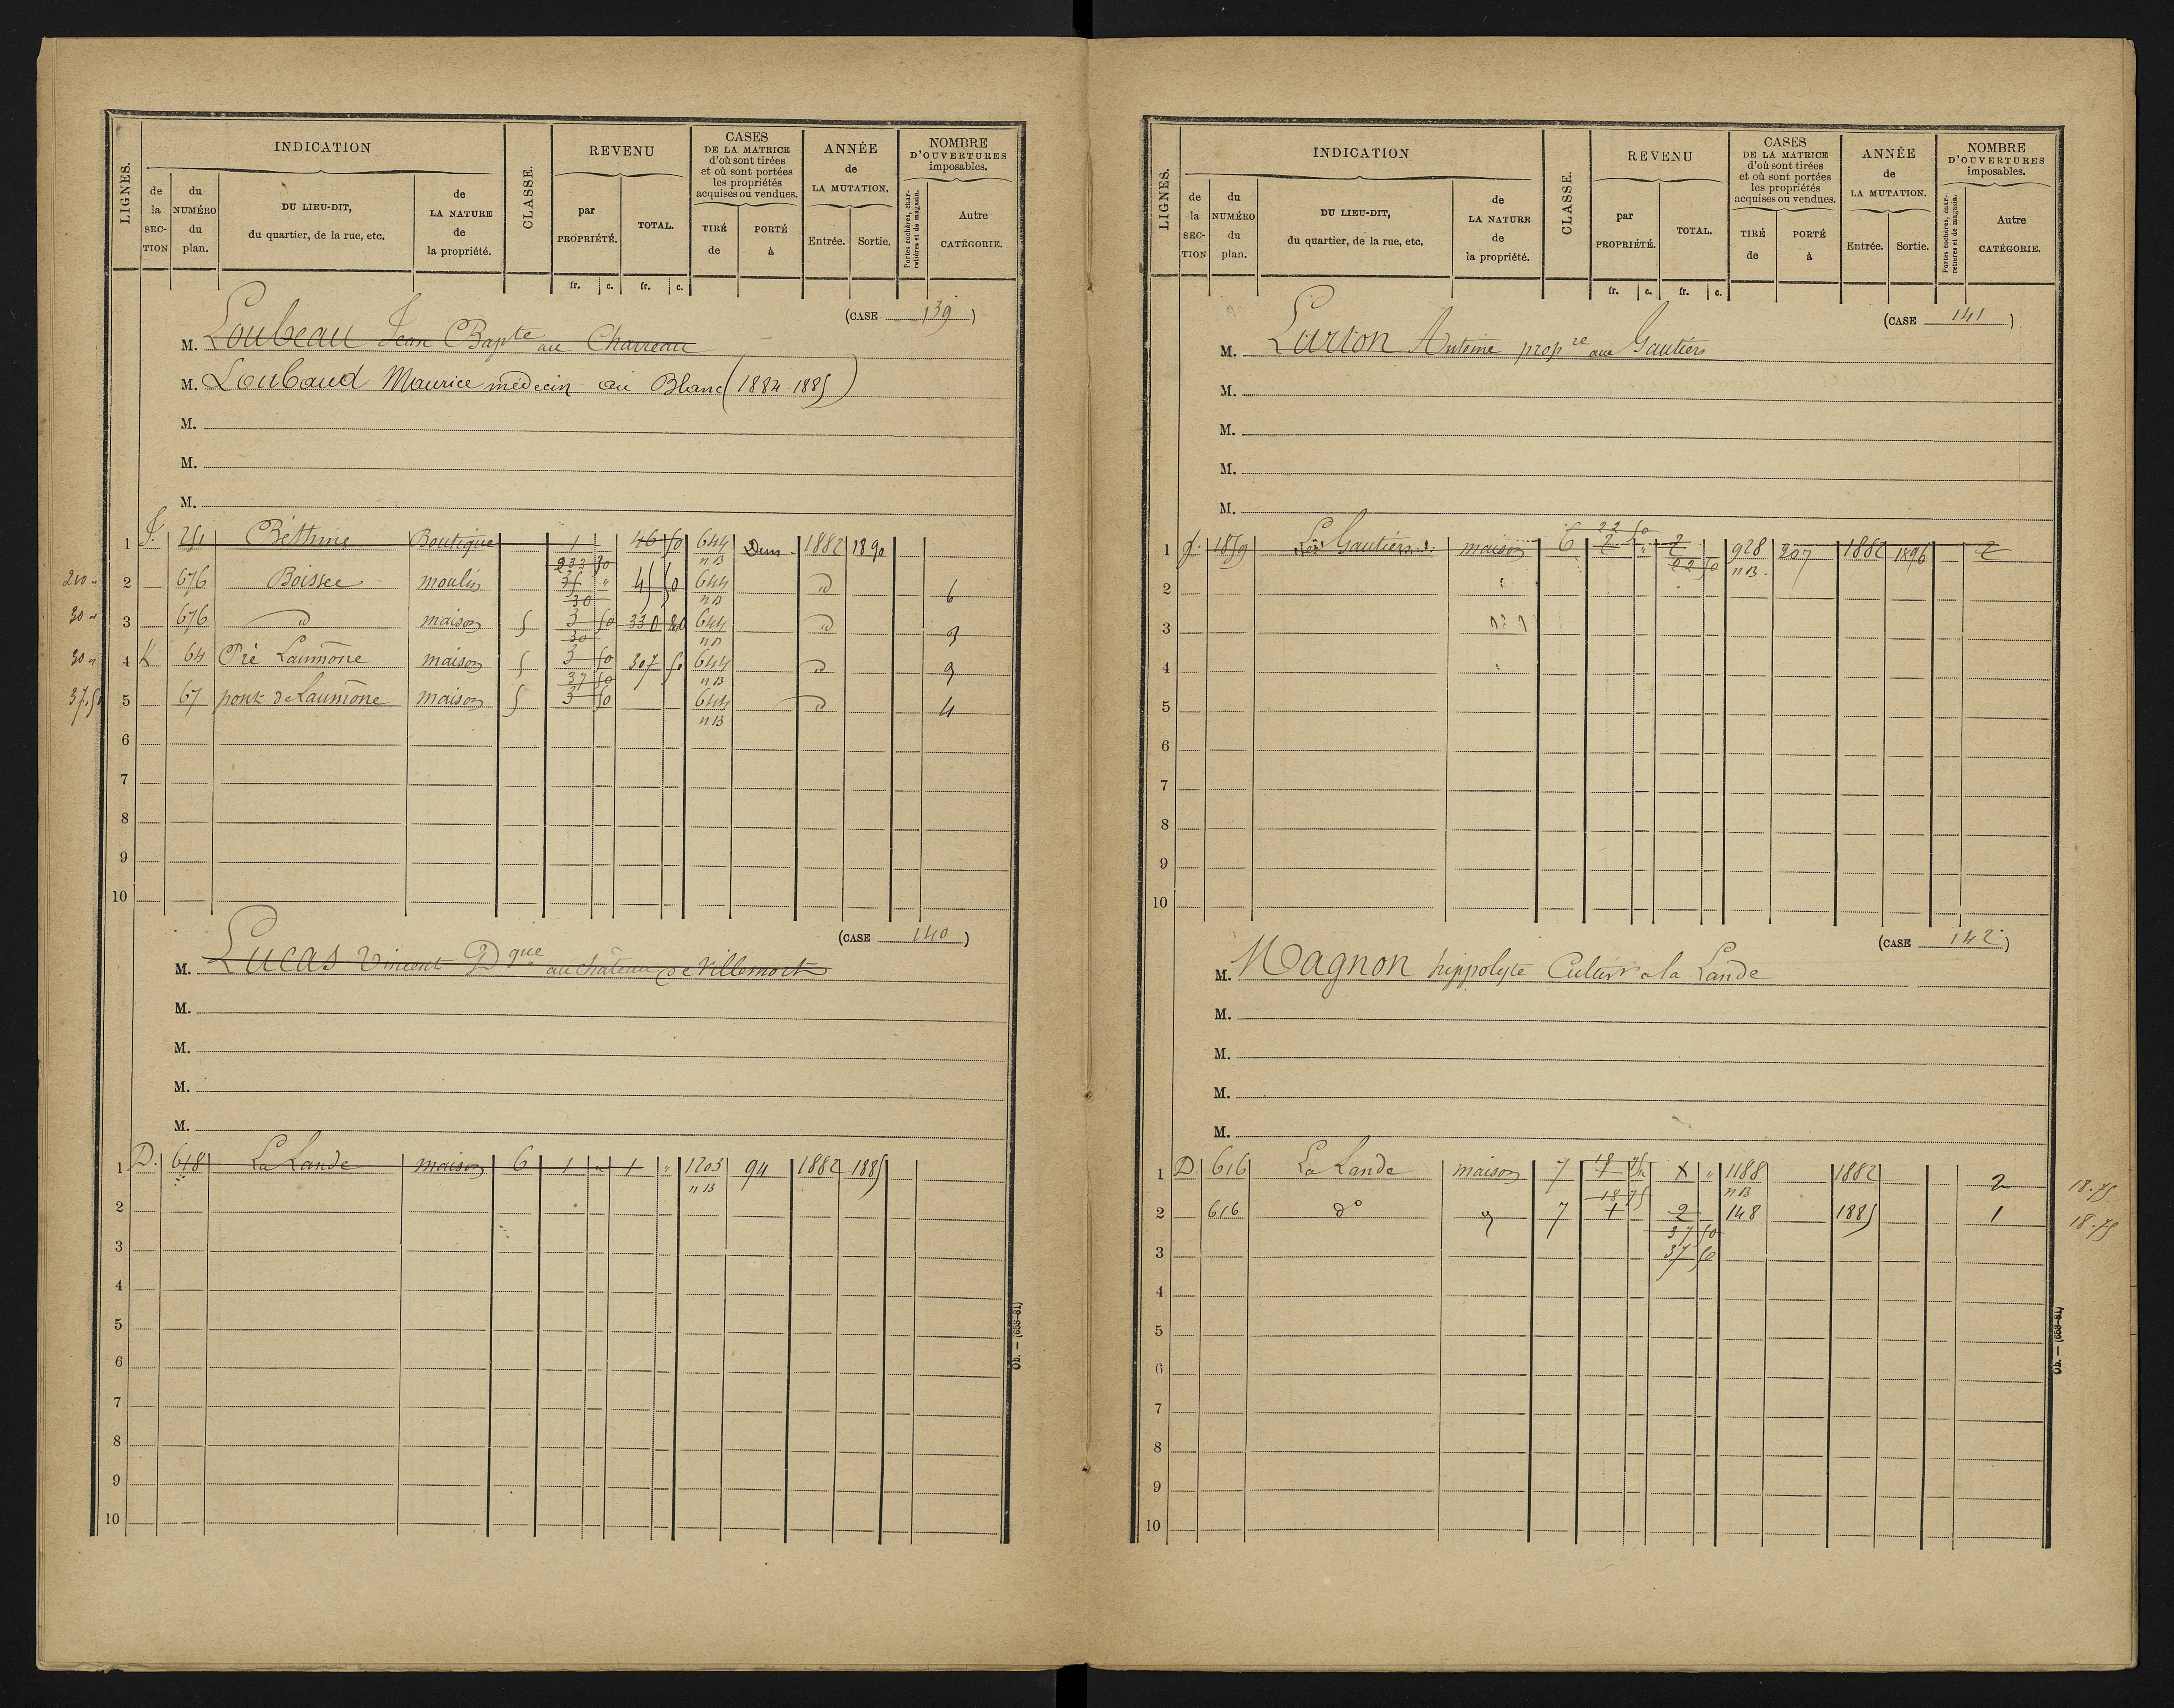 LIGNES.
INDICATION
de la SECTION
du NUMÉRO du plan.
DU LIEU-DIT, du quartier, de la rue, etc.
de LA NATURE de la propriété.
CLASSE.
REVENU
par PROPRIÉTÉ.
TOTAL.
CASES DE LA MATRICE d'où sont tirées et où sont portées les propriétés acquises ou vendues.
TIRÉ de
PORTÉ à
ANNÉE de LA MUTATION.
Entrée.
Sortie.
NOMBRE D'OUVERTURES imposables.
Portes cochères, charretières et de magasin.
Autre CATÉGORIE.
fr. c. fr. c.
(CASE 139)
M. Loubeau Jean Bapte au Charreau
M. Loubaud Maurice médecin au Blanc (1884-1885)
M.
M.
M.
1 J. 251 Béthine Boutique 1 46 50 644 nB Dem. 1882 1890
210 " 2 676 Boissec moulin 233 30 35 " 45 50 644 nB d 6
30 " 3 676 d maison 5 30 3 50 330 80 644 nB d 9
30 " 4 K 64 Pré Laumône maison 5 30 3 50 307 50 644 nB d 9
37.50 5 67 pont de Laumône maison 5 37 50 3 50 644 nB d 4
6
7
8
9
10
(CASE 140)
M. Lucas Vincent Dque au château de Villemort
M.
M.
M.
M.
1 D. 618 La Lande maison 6 1 " 1 " 1203 nB 94 1882 1885
2
3
4
5
6
7
8
9
10
Ob. — (653-81)
LIGNES.
INDICATION
de la SECTION
du NUMÉRO du plan.
DU LIEU-DIT, du quartier, de la rue, etc.
de LA NATURE de la propriété.
CLASSE.
REVENU
par PROPRIÉTÉ.
TOTAL.
CASES DE LA MATRICE d'où sont tirées et où sont portées les propriétés acquises ou vendues.
TIRÉ de
PORTÉ à
ANNÉE de LA MUTATION.
Entrée.
Sortie.
NOMBRE D'OUVERTURES imposables.
Portes cochères, charretières et de magasin.
Autre CATÉGORIE.
fr. c. fr. c.
(CASE 141)
M. Lurton Antoine propre aux Gautiers
M.
M.
M.
M.
1 J. 1859 Les Gautiers maison 6 22 50 2 " 2 22 50 928 nB. 207 1882 1896 2
2
3
4
5
6
7
8
9
10
(CASE 142)
M. Magnon hippolyte Cultivr a la Lande
M.
M.
M.
M.
1 D 616 La Lande maison 7 18 75 1 " 1188 nB 1882 2 18.75
2 616 do d 7 18 75 1 2 148 1885 1 18.75
37 50
3 37 50
4
5
6
7
8
9
10
Ob. — (653-81)